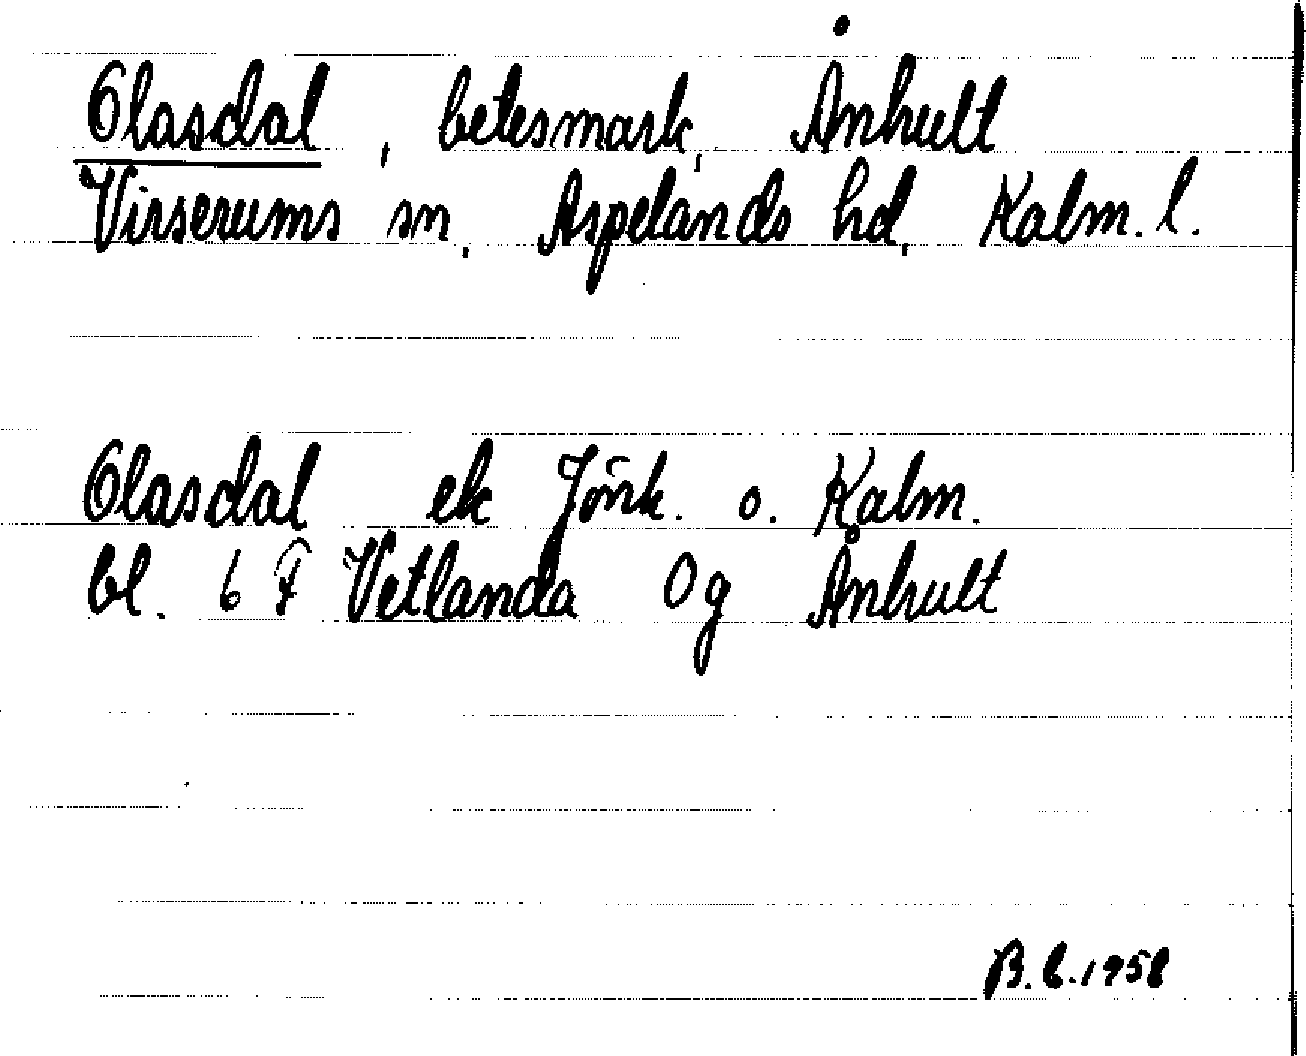 Olasdal, betesmark, Ånhult
Virserums sn, Aspelands hd, Kalm. l.
Olasdal ek Jönk. o. Kalm.
bl. 6 F Vetlanda 0g Ånhult